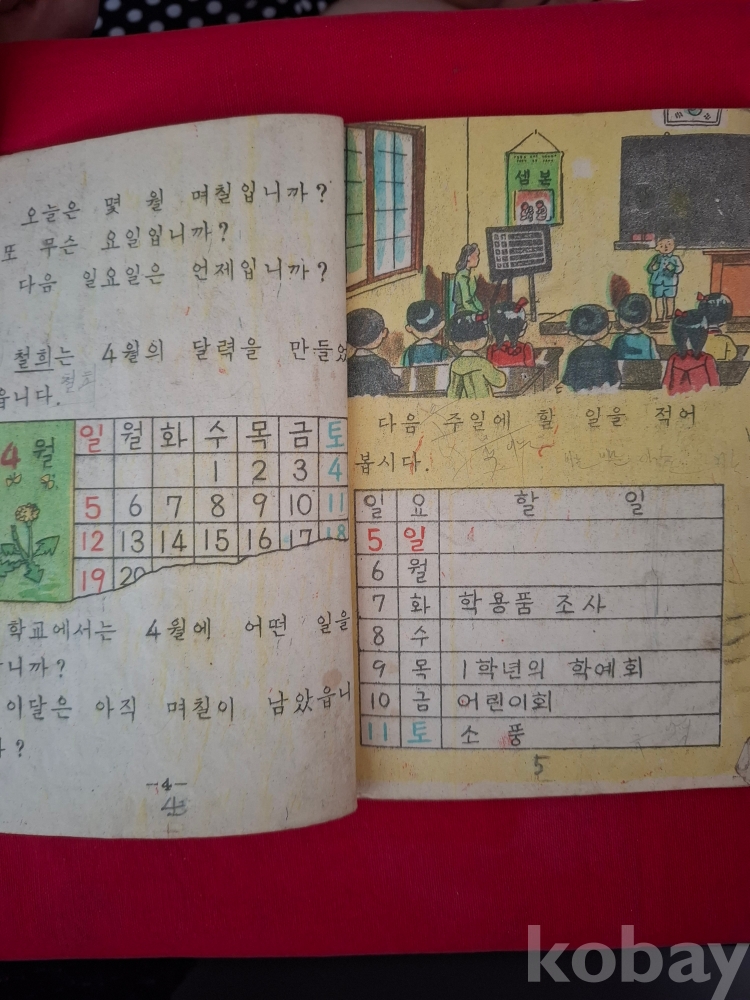 오늘은 몇 월 며칠입니까?
또 무슨 요일입니까?
다음 일요일은 언제입니까?
철희는 4월의 달력을 만들었
읍니다.
4 월
일 월 화 수 목 금 토
1 2 3 4
5 6 7 8 9 10 11
12 13 14 15 16 17 18
19 20
학교에서는 4월에 어떤 일을
니까?
이달은 아직 며칠이 남았읍니
?
-4-
4
셈본
다음 주일에 할 일을 적어
봅시다.
일 요 할 일
5 일
6 월
7 화 학용품 조사
8 수
9 목 1학년의 학예회
10 금 어린이회
11 토 소 풍
5
kobay